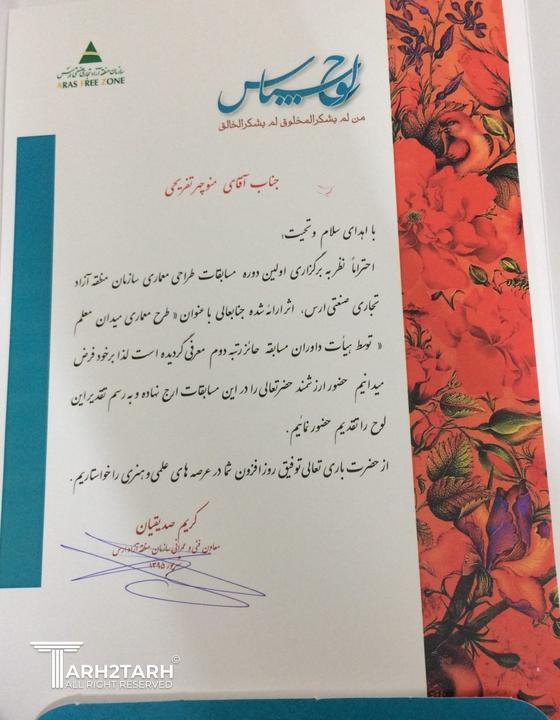 سازمان منطقه آزاد تجاری صنعتی ارس
ARAS FREE ZONE
لوح سپاس
من لم یشکرالمخلوق لم یشکرالخالق
جناب آقای منوچهر تفریحی
با اهدای سلام و تحیت؛
احتراماً نظر به برگزاری اولین دوره مسابقات طراحی معماری سازمان منطقه آزاد
تجاری صنعتی ارس، اثر ارائه شده جنابعالی با عنوان « طرح معماری میدان معلم
» توسط هیأت داوران مسابقه حائز رتبه دوم معرفی گردیده است لذا برخود فرض
میدانیم حضور ارزشمند حضرتعالی را در این مسابقات ارج نهاده و به رسم تقدیر این
لوح را تقدیم حضور نمائیم.
از حضرت باری تعالی توفیق روز افزون شما در عرصه های علمی و هنری را خواستاریم.
کریم صدیقیان
معاون فنی و عمرانی سازمان منطقه آزاد ارس
۱۳۹۵
TARH2TARH©
ALL RIGHT RESERVED